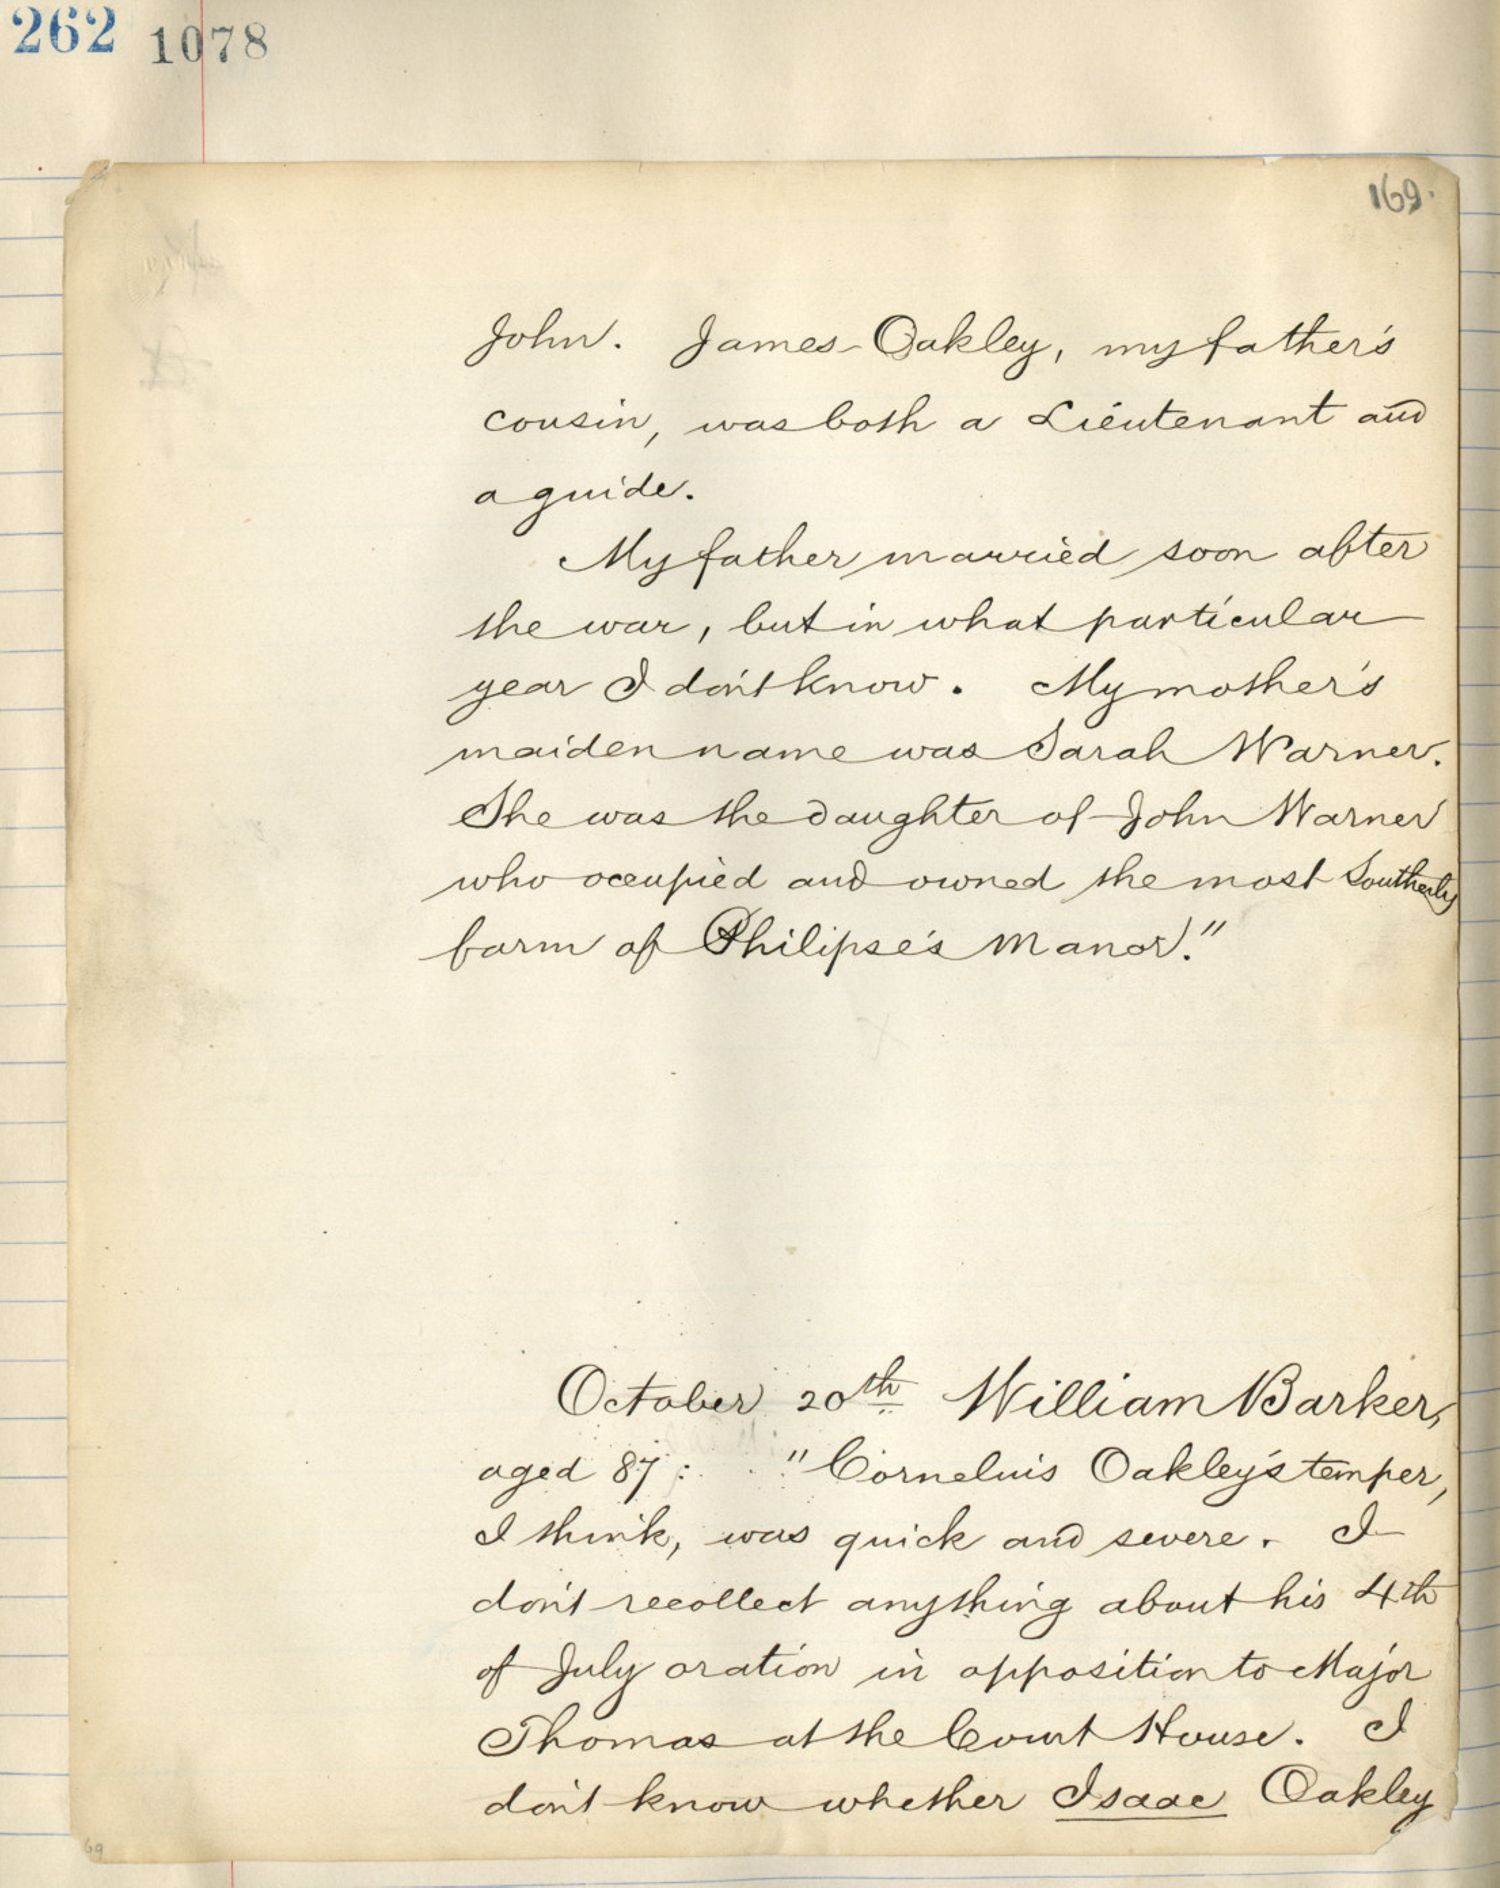 262 1078
169.
John. James Oakley, my father's
cousin, was both a Lieutenant and
a guide.
My father married soon after
the war, but in what particular
year I don't know. My mother's
maiden name was Sarah Warner.
She was the daughter of John Warner
who occupied and owned the most Southerly
farm of Philipse's Manor."
October 20th William Barker,
aged 87: "Cornelius Oakley's temper,
I think, was quick and severe. I
don't recollect anything about his 4th
of July oration in opposition to Major
Thomas at the Court House. I
don't know whether Isaac Oakley
69